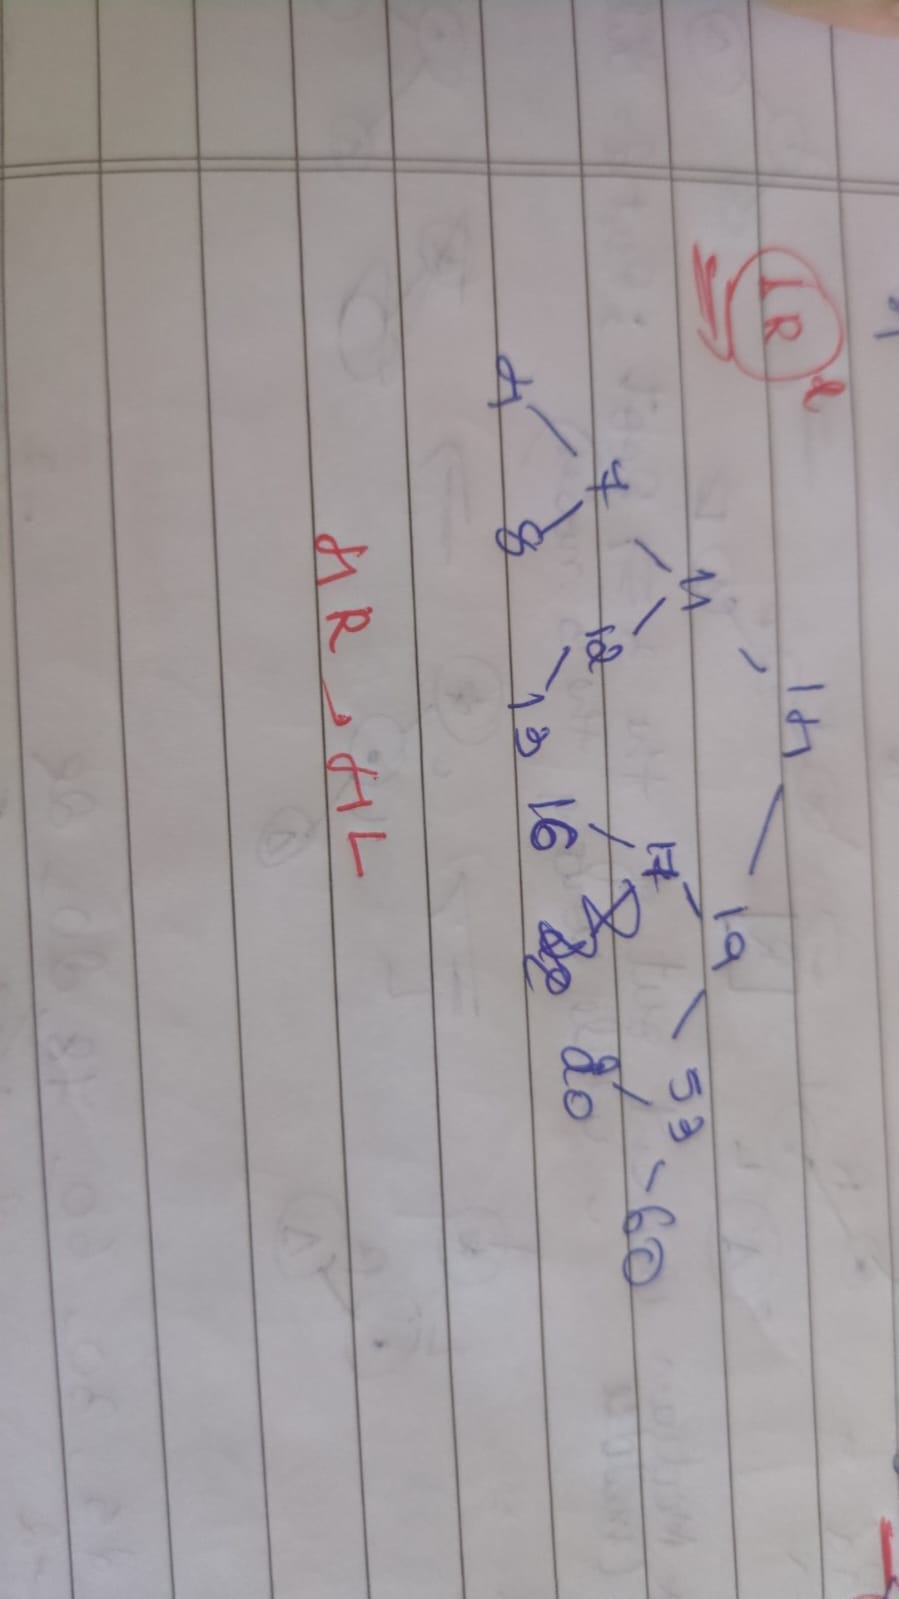 LR
14
11 19
7 12 17 53
4 8 13 16 20 60
4R → 4L